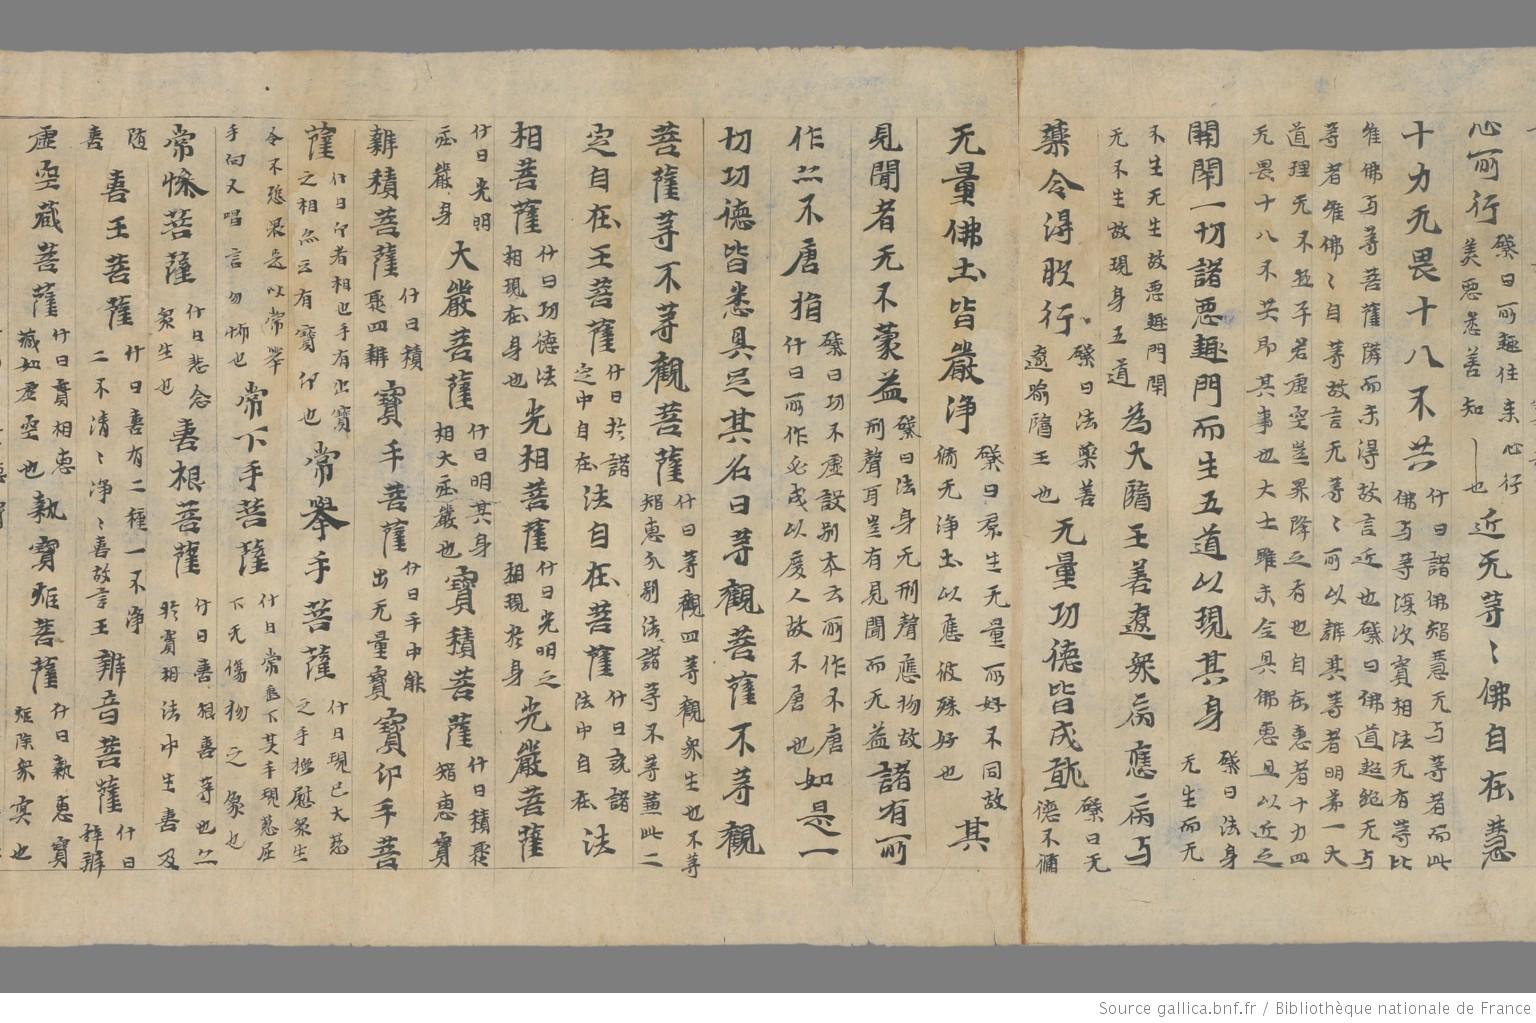 心所行
肇曰所趣住来心行
美惡悉善知〻也
近无等〻佛自在慧
十力无畏十八不共
什曰諸佛智慧无与等者而此
佛与等復次實相法无有等比
唯佛与等菩薩隣而未得故言近也肇曰佛道超絶无与
等者唯佛〻自等故言无等〻所以辯其等者明第一大
道理无不極平若虛空豈昇降之有也自在惠者十力四
无畏十八不共即其事也大士雖未全具佛惠且以近之
關閉一切諸惡趣門而生五道以現其身
肇曰法身
无生而无
不生无生故惡趣門閉
无不生故現身五道
為大醫王善療衆病應病与
藥令得服行
肇曰法藥善
療喻醫王也
无量功德皆成就
肇曰无
德不備
无量佛土皆嚴淨
肇曰群生无量所好不同故
脩无淨土以應彼殊好也
其
見聞者无不蒙益
肇曰法身无形聲應物故
形聲耳豈有見聞而无益
諸有所
作亦不唐捐
肇曰功不虛設別本云所作不唐
什曰所作必成以度人故不唐也
如是一
切功德皆悉具足其名曰等觀菩薩不等觀
菩薩等不等觀菩薩
什曰等觀四等觀衆生也不等
智惠分別法諸等不等兼此二
定自在王菩薩
什曰於諸
定中自在
法自在菩薩
什曰說諸
法中自在
法
相菩薩
什曰功德法
相現在身也
光相菩薩
什曰光明之
相現於身
光嚴菩薩
什曰光明
庄嚴身
大嚴菩薩
什曰明其身
相大庄嚴也
寶積菩薩
什曰積聚
智惠寶
辯積菩薩
什曰積
聚四辯
寶手菩薩
什曰手中能
出无量寶
寶印手菩
薩
什曰印者相也手有出寶
之相亦云有寶印也
常舉手菩薩
什曰現已大慈
之手撫慰衆生
令不恐畏是以常舉
手向又唱言勿怖也
常下手菩薩
什曰常垂下其手現慈屈
下无傷物之象也
常慘菩薩
什曰悲念
衆生也
善根菩薩
什曰善根善等也亦
於實相法中生善及
随
喜
喜王菩薩
什曰喜有二種一不淨
二不清〻淨〻喜故言王
辯音菩薩
什曰
辞辯
虛空藏菩薩
什曰實相惠
藏如虛空也
執寶炬菩薩
什曰執惠寶
炬除衆冥也